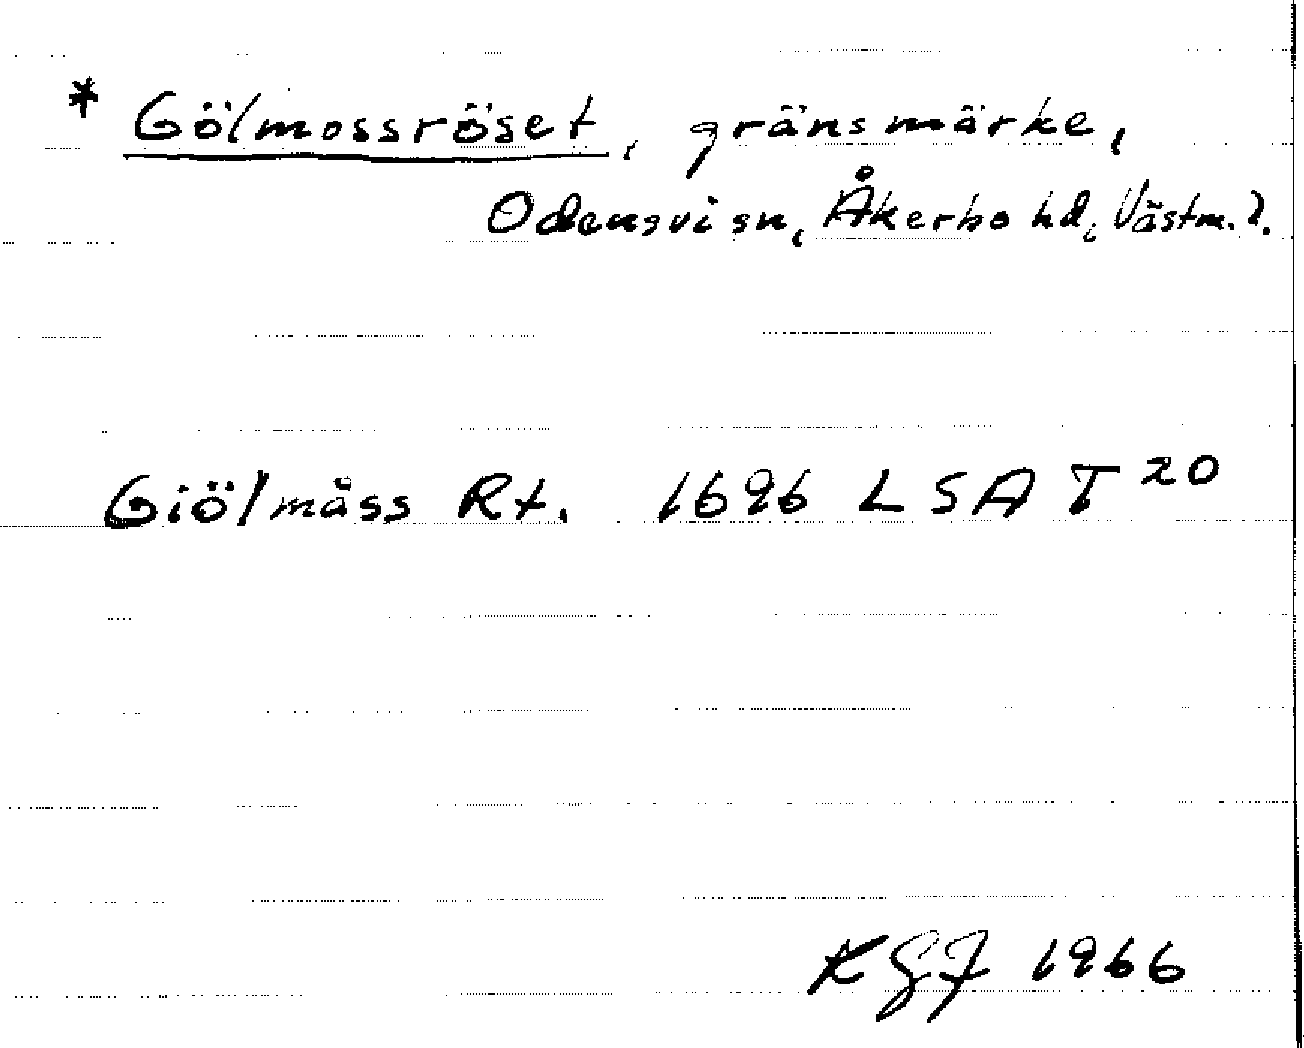 * Gölmossröset, gränsmärke,
Odensvi sn, Åkerbo hd, Västm. l.
Giölmåss Rt. 1696 LSA T 20
KGF 1966